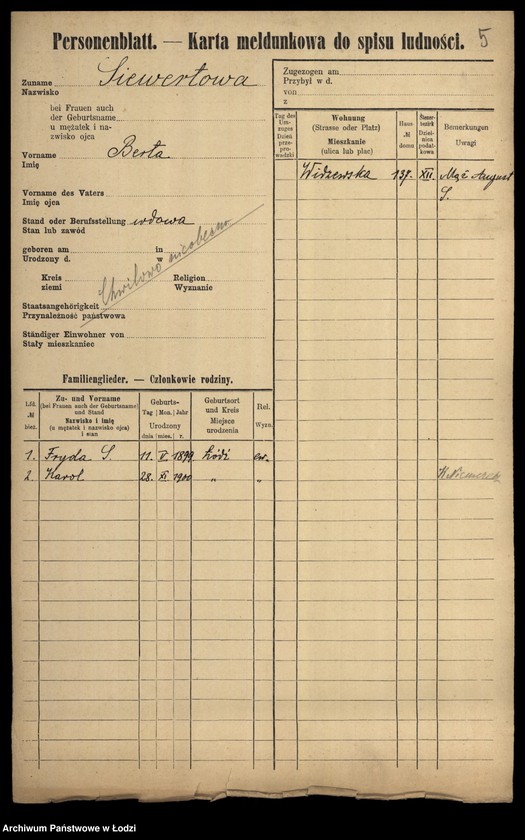 Personenblatt. — Karta meldunkowa do spisu ludności. 5
Zuname Siewertowa
Nazwisko
bei Frauen auch
der Geburtsname
u mężatek i na-
zwisko ojca
Vorname Berta
Imię
Vorname des Vaters
Imię ojca
Stand oder Berufsstellung wdowa
Stan lub zawód
geboren am in
Urodzony d. w
Chwilowo nieobecna
Kreis Religion
ziemi Wyznanie
Staatsangehörigkeit
Przynależność państwowa
Ständiger Einwohner von
Stały mieszkaniec
Zugezogen am
Przybył w d.
von
z
Tag des Um-zuges Dzień prze-prowadzki
Wohnung
(Strasse oder Platz)
Mieszkanie
(ulica lub plac)
Haus-№ domu
Steuer-bezirk Dziel-nica podat-kowa
Bemerkungen
Uwagi
Widzewska 137. XII. Mąż August
S.
Familienglieder. — Członkowie rodziny.
Lfd. № bież.
Zu- und Vorname
(bei Frauen auch der Geburtsname)
und Stand
Nazwisko i imię
(u mężatek i nazwisko ojca)
i stan
Geburts-
Tag Mon. Jahr
Urodzony
dnia mies. r.
Geburtsort
und Kreis
Miejsce
urodzenia
Rel.
Wyzn.
1. Fryda S. 11. V. 1899 Łódź ew.
2. Karol. 28. XI 1900 „ „
Archiwum Państwowe w Łodzi